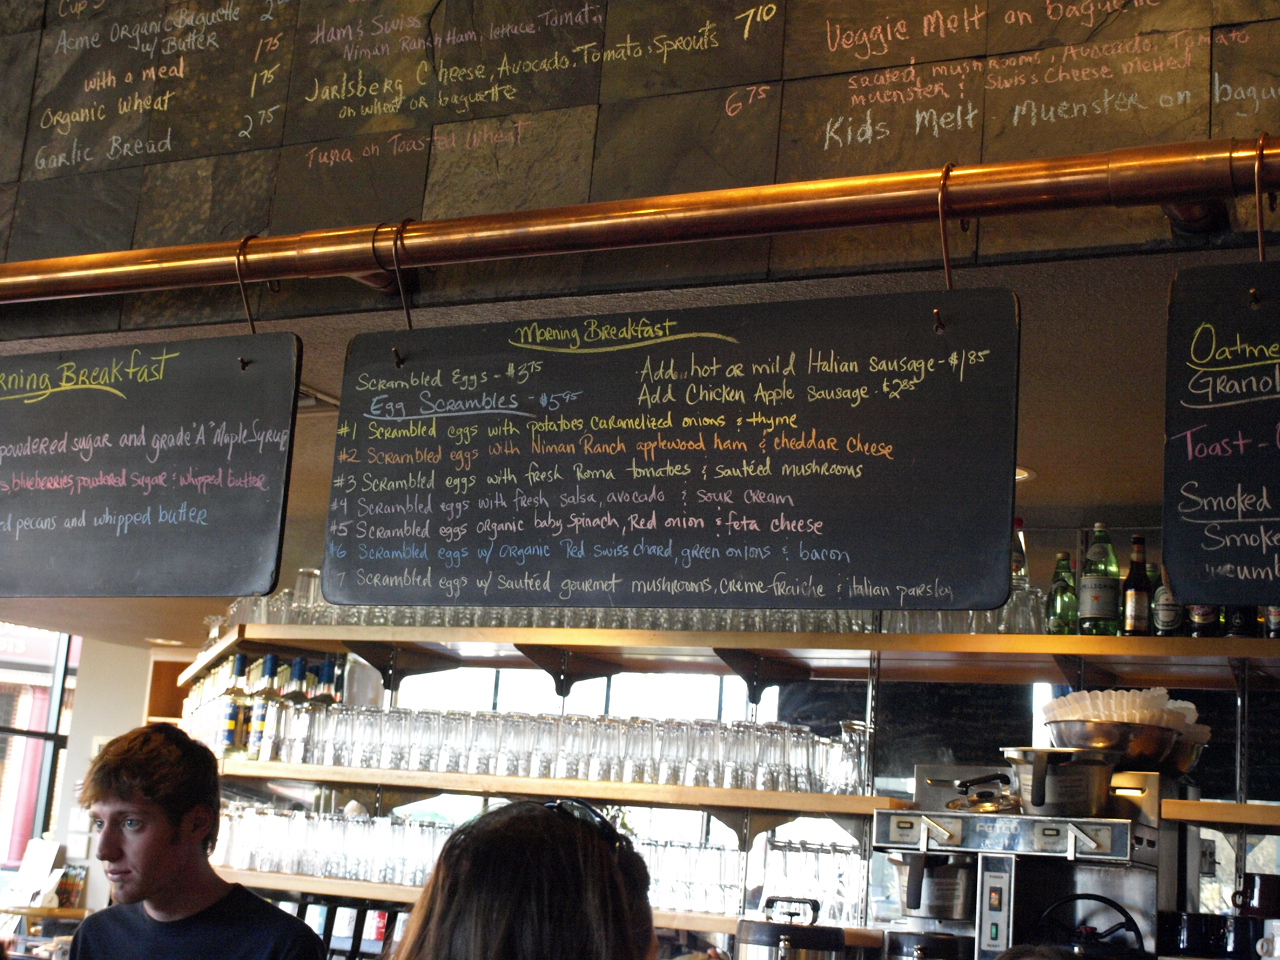 Cup
Acme Organic Baguette 2
w/ Butter 1.75
with a meal
Organic Wheat 1.75
Garlic Bread 2.75
Ham & Swiss
Niman Ranch Ham, lettuce, Tomato
Jarlsberg Cheese, Avocado, Tomato, Sprouts 7.10
on wheat or baguette
Tuna on Toasted Wheat 6.75
Veggie Melt on baguette
sautéed mushrooms, Avocado, Tomato
muenster & Swiss Cheese melted
Kids Melt Muenster on bagu
rning Breakfast
powdered sugar and grade "A" Maple Syrup
s, blueberries, powdered sugar & whipped butter
d pecans and whipped butter
Morning Breakfast
Scrambled Eggs - $3.75
Egg Scrambles - $5.95
Add hot or mild Italian sausage - $1.85
Add Chicken Apple Sausage - $2.85
#1 Scrambled eggs with potatoes, caramelized onions & thyme
#2 Scrambled eggs with Niman Ranch applewood ham & cheddar cheese
#3 Scrambled eggs with fresh Roma tomatoes & sautéed mushrooms
#4 Scrambled eggs with fresh salsa, avocado & sour cream
#5 Scrambled eggs organic baby spinach, Red onion & feta cheese
#6 Scrambled eggs w/ Organic Red Swiss chard, green onions & bacon
7 Scrambled eggs w/ Sautéed gourmet mushrooms, creme-fraiche & italian parsley
Oatme
Granol
Toast -
Smoked
Smoke
cumb
FETCO